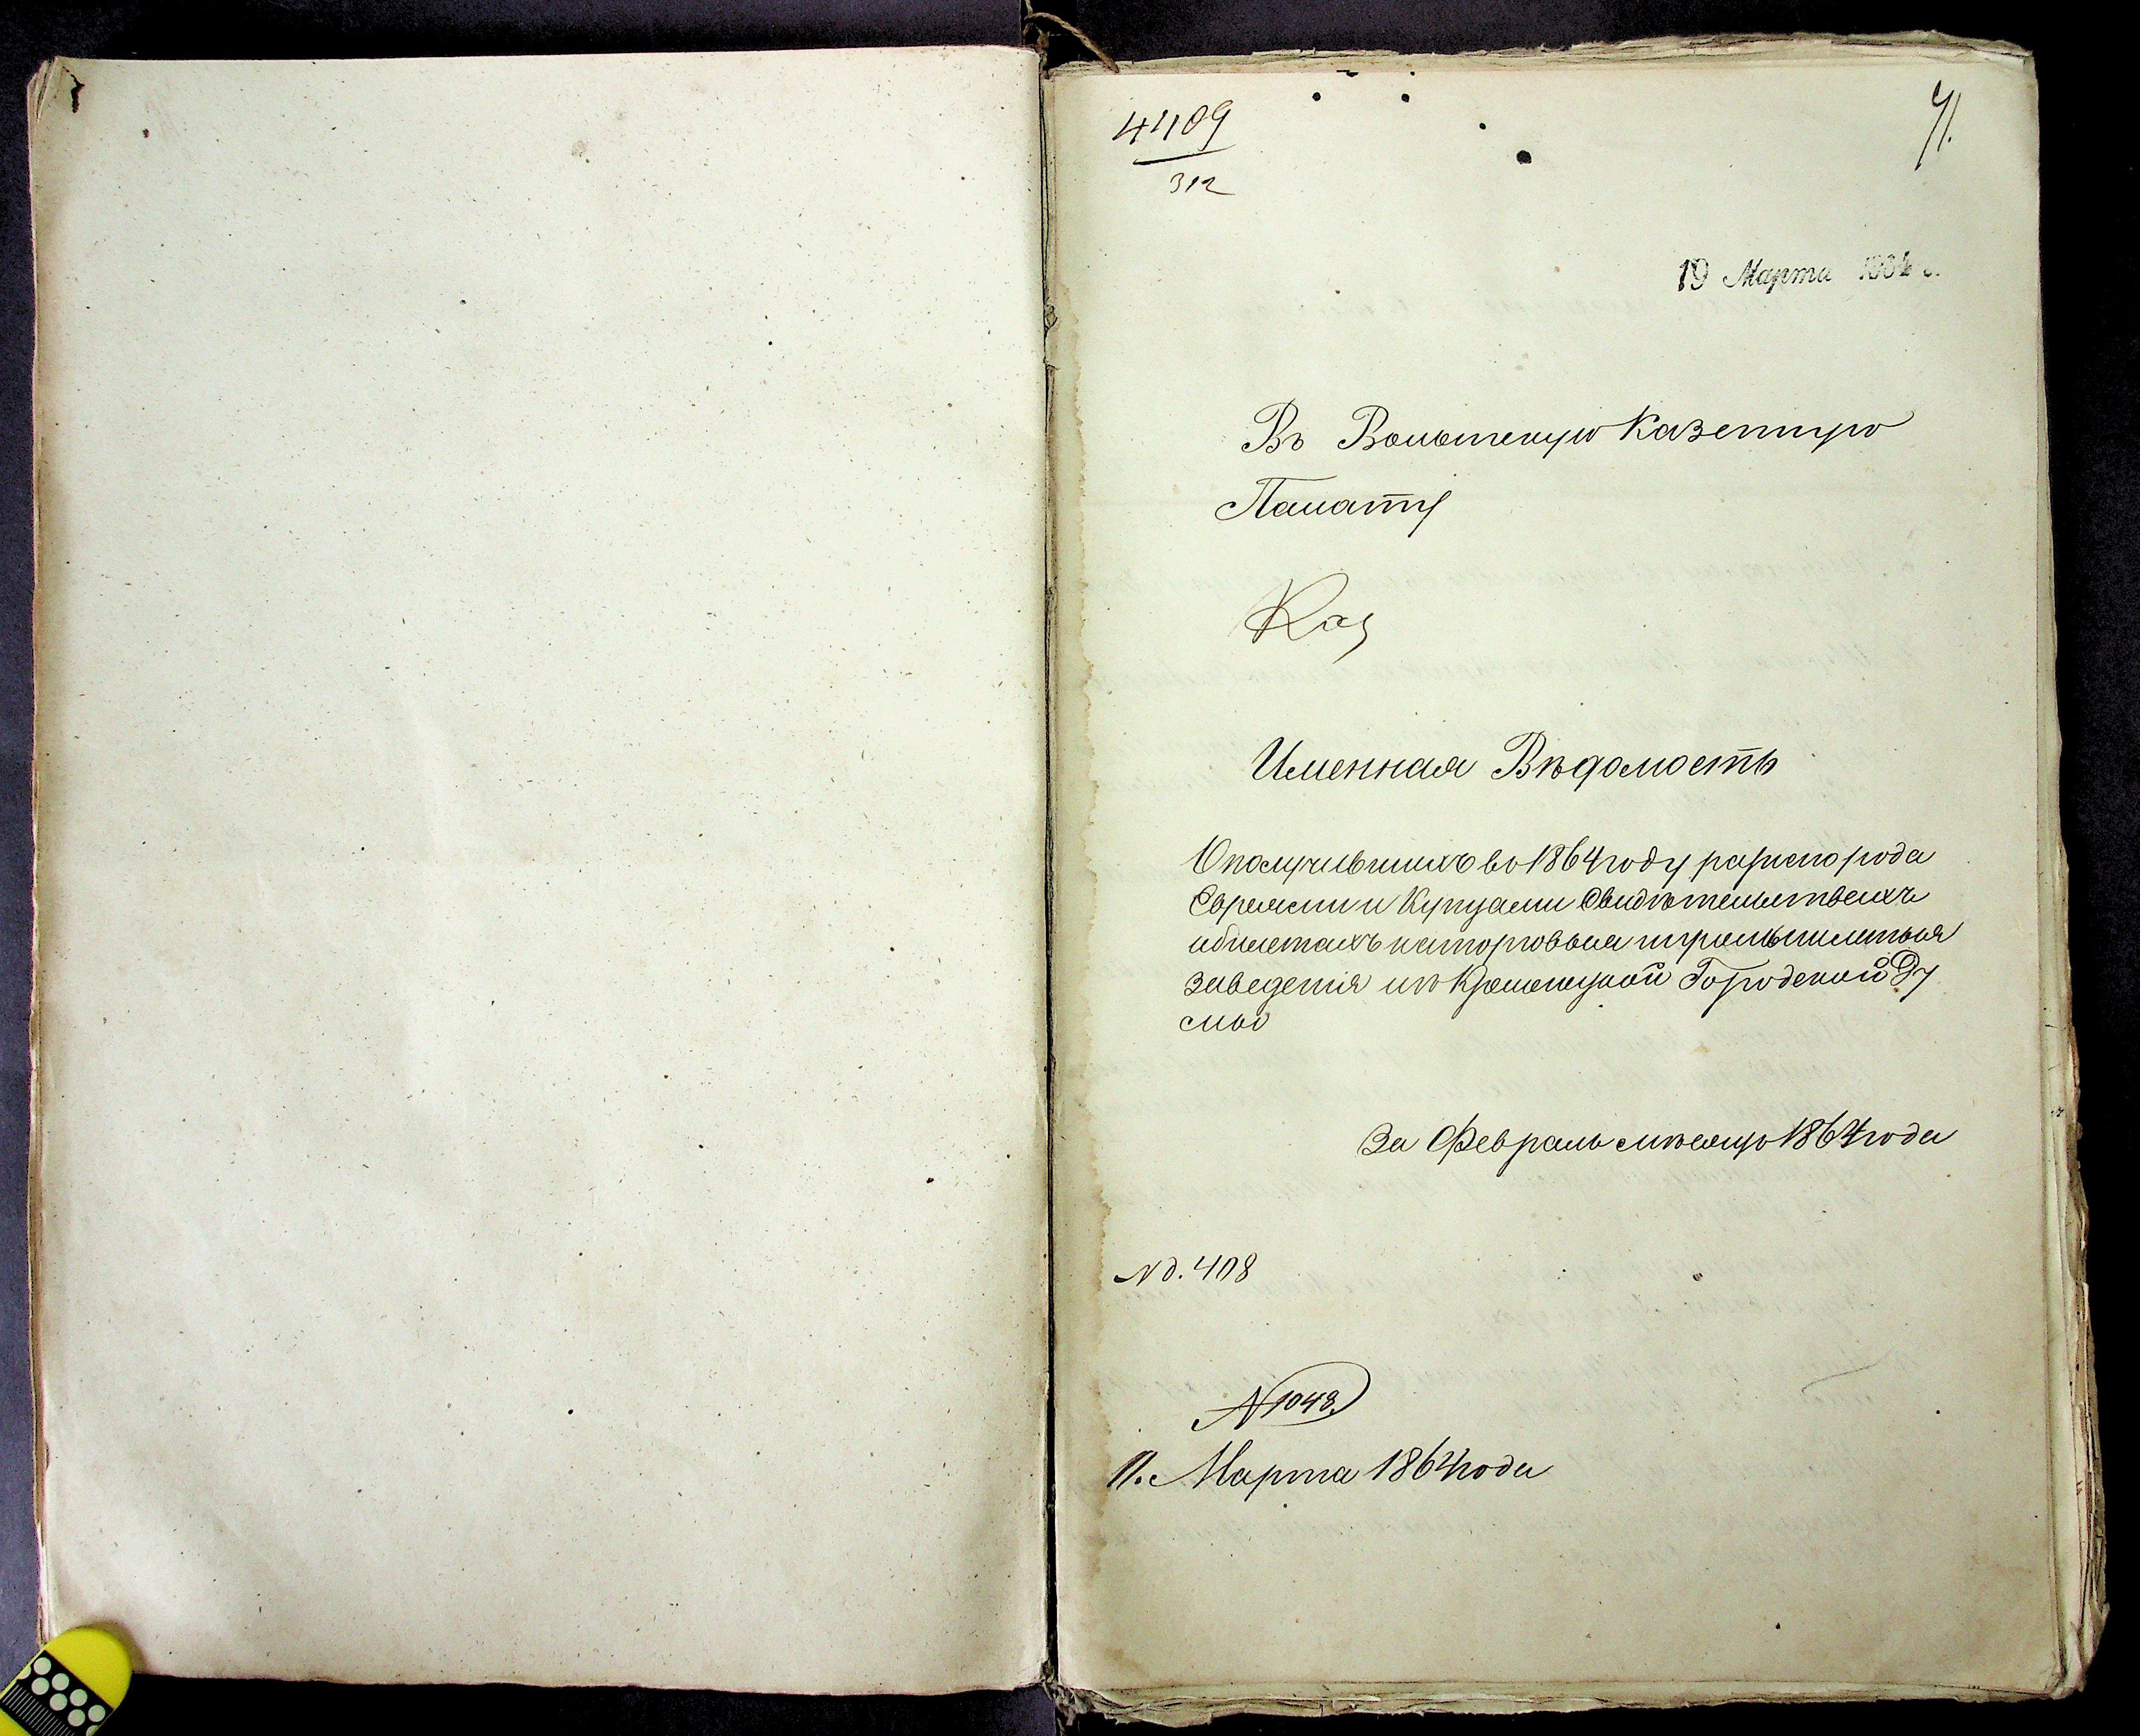 4409
312
71.
19 Марта 1864 г.
Въ Волынскую Казенную
Палату
Каз
Именная Вѣдомость
О получившихъ во 1864 году разного рода
Евреями и Купцами Свидѣтельствахъ
и билетахъ на торговыя и промышленныя
заведенія изъ Кременецкой Городской Ду
мы
За Февраль мѣсяцъ 1864 года
№ д. 408
№ 1048.
11. Марта 1864 года